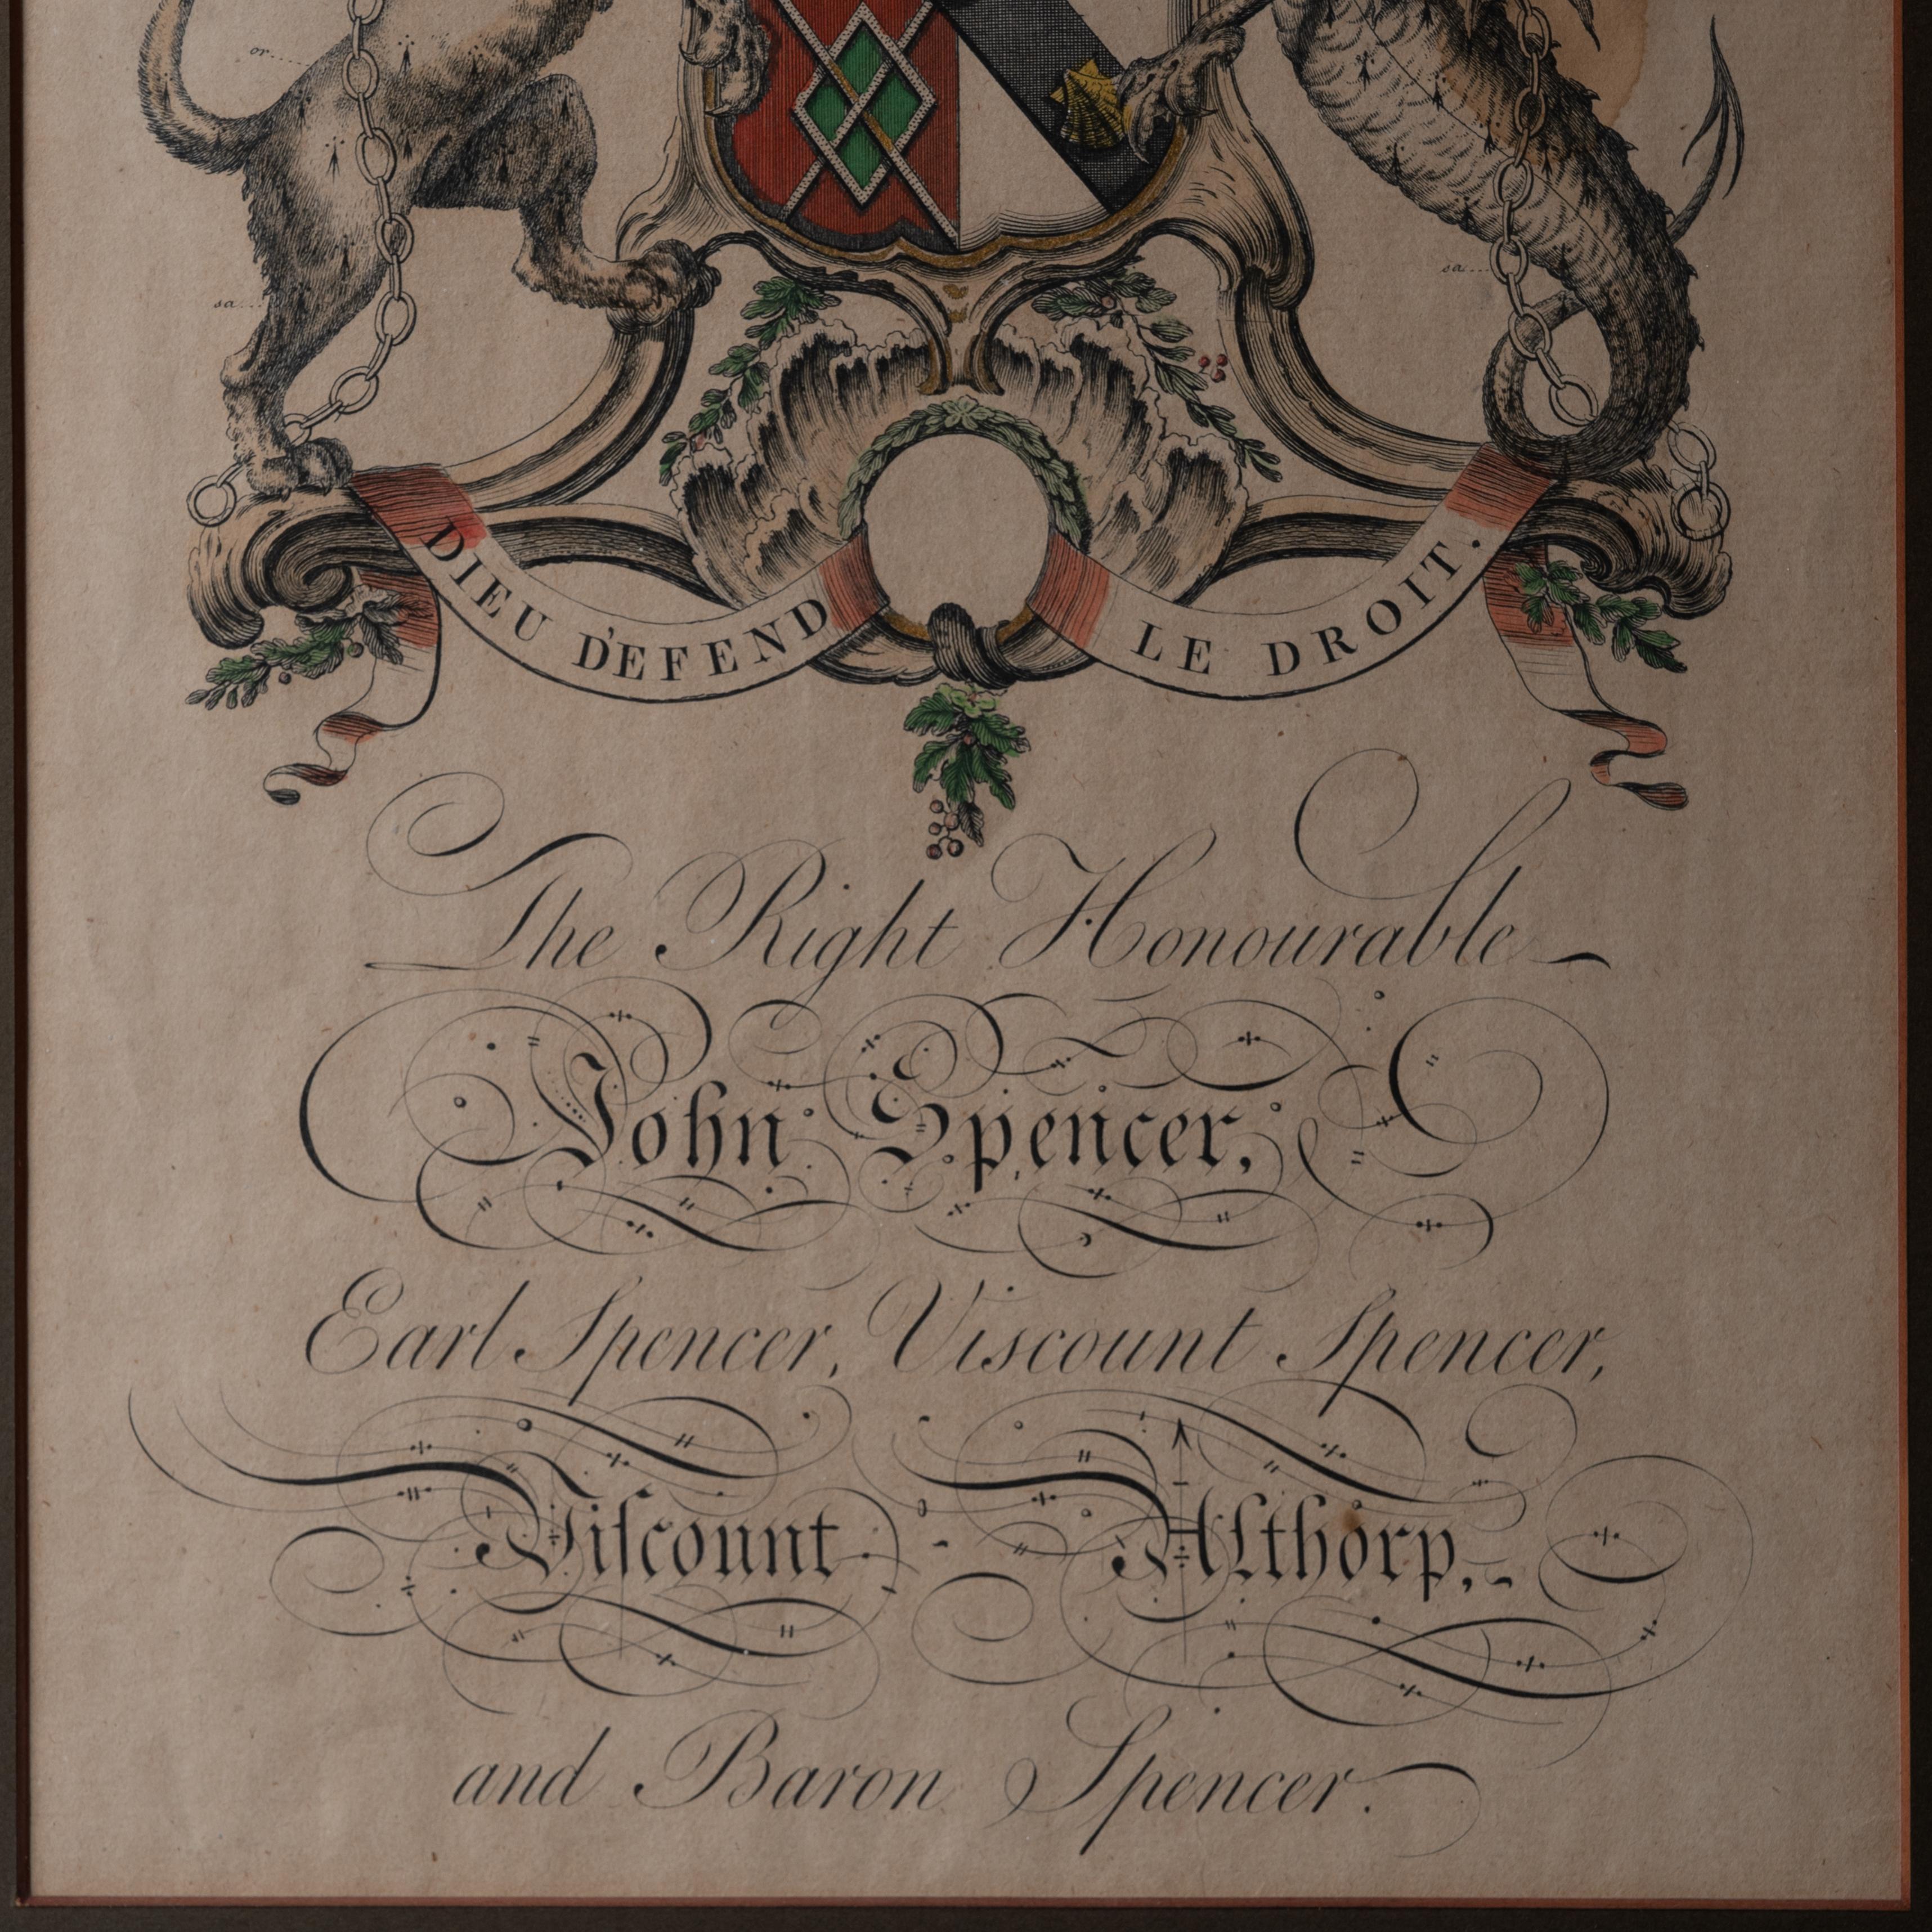 or
sa
sa
DIEU D'EFEND LE DROIT.
The Right Honourable
John Spencer,
Earl Spencer, Viscount Spencer,
Viſcount - Althorp,-
and Baron Spencer.